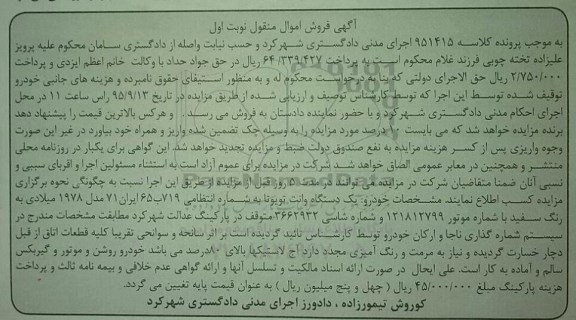 آگهی فروش اموال منقول نوبت اول
به موجب پرونده کلاسه ۹۵۱۴۱۵ اجرای مدنی دادگستری شهرکرد و حسب نیابت واصله از دادگستری سامان محکوم علیه پرویز
علیزاده تخته چوبی فرزند غلام محکوم است به پرداخت ۶۴/۳۳۹/۴۲۷ ریال در حق جواد حداد با وکالت خانم اعظم ایزدی و پرداخت
۲/۷۵۰/۰۰۰ ریال حق الاجرای دولتی که بنا به درخواست محکوم له و به منظور استیفای حقوق نامبرده و هزینه های جانبی خودرو
توقیف شده توسط این اجرا که توسط کارشناس توصیف و ارزیابی شده از طریق مزایده در تاریخ ۹۵/۹/۱۳ راس ساعت ۱۱ در محل
اجرای احکام مدنی دادگستری شهرکرد و با حضور نماینده دادستان به فروش می رسد. و هرکس بالاترین قیمت را پیشنهاد دهد
برنده مزایده خواهد شد که می بایست ۱۰درصد مورد مزایده را به وسیله چک تضمین شده واریز و همراه خود بیاورد در غیر این صورت
وجه واریزی پس از کسر هزینه مزایده به نفع صندوق دولت ضبط و مزایده تجدید خواهد شد. این گواهی برای یکبار در روزنامه محلی
منتشر و همچنین در معابر عمومی الصاق خواهد شد شرکت در مزایده برای عموم آزاد است به استثناء مسئولین اجرا و اقربای سببی و
نسبی آنان ضمنا متقاضیان شرکت در مزایده می توانند در مدت ۵ روز قبل از مزایده از طریق این اجرا نسبت به چگونگی نحوه برگزاری
مزایده کسب اطلاع نمایند. مشخصات خودرو: یک دستگاه وانت تویوتا به شماره انتظامی ۷۱۹ب۶۵ ایران۷۱ مدل ۱۹۷۸ میلادی به
رنگ سفید با شماره موتور ۱۲۱۸۱۲۷۹۹ و شماره شاسی ۳۶۶۲۹۳۲ متوقف در پارکینگ عدالت شهرکرد مطابقت مشخصات مندرج در
سیستم شماره گذاری ناجا و ارکان خودرو توسط کارشناس تائید گردیده است بر اثر سانحه و سوانحی تقریبا کلیه قطعات اتاق از قبل
دچار خسارت گردیده و نیاز به مرمت و رنگ آمیزی مجدد دارد آج لاستیکها بالای ۸۰درصد می باشد خودرو روشن و موتور و گیربکس
سالم و آماده به کار است. علی ایحال در صورت ارائه اسناد مالکیت و تسلسل آنها و ارائه گواهی عدم خلافی و بیمه نامه ثالث و پرداخت
هزینه پارکینگ مبلغ ۴۵/۰۰۰/۰۰۰ ریال ( چهل و پنج میلیون ریال ) به عنوان قیمت پایه تعیین می گردد.
کوروش تیمورزاده ، دادورز اجرای مدنی دادگستری شهرکرد